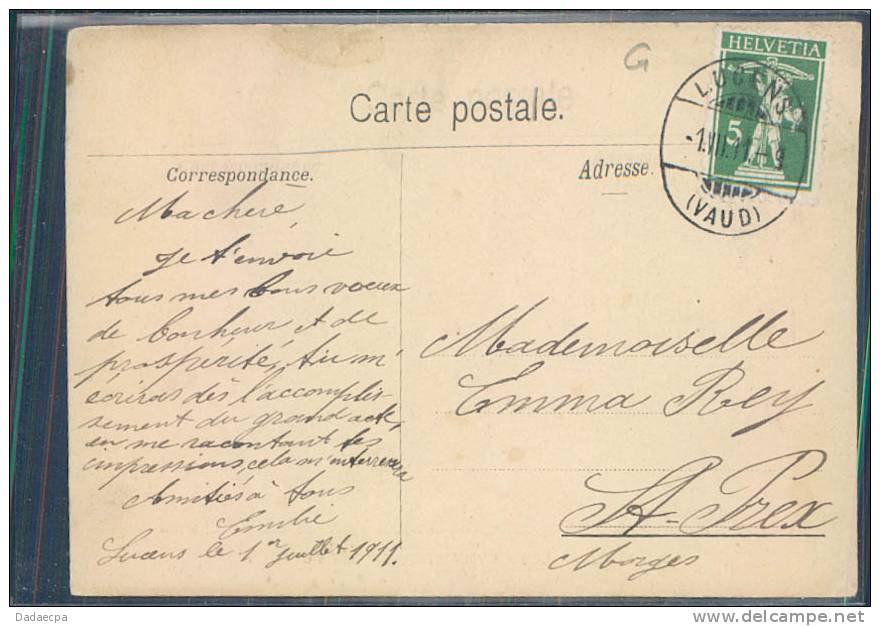 G
HELVETIA
5
LUCENS
-1.VII.11-9
(VAUD)
Carte postale.
Correspondance.
Adresse.
Ma chère,
je t'envoie
tous mes bons vœux
de bonheur et de
prospérité, tu m'
écriras dès l'accomplis-
sement du grand acte,
en me racontant tes
impressions, cela m'intéressera
Amitiés à tous
Emilie
Lucens le 1er juillet 1911.
Mademoiselle
Emma Rey
St-Prex
Morges
Dadaecpa
delcampe.net